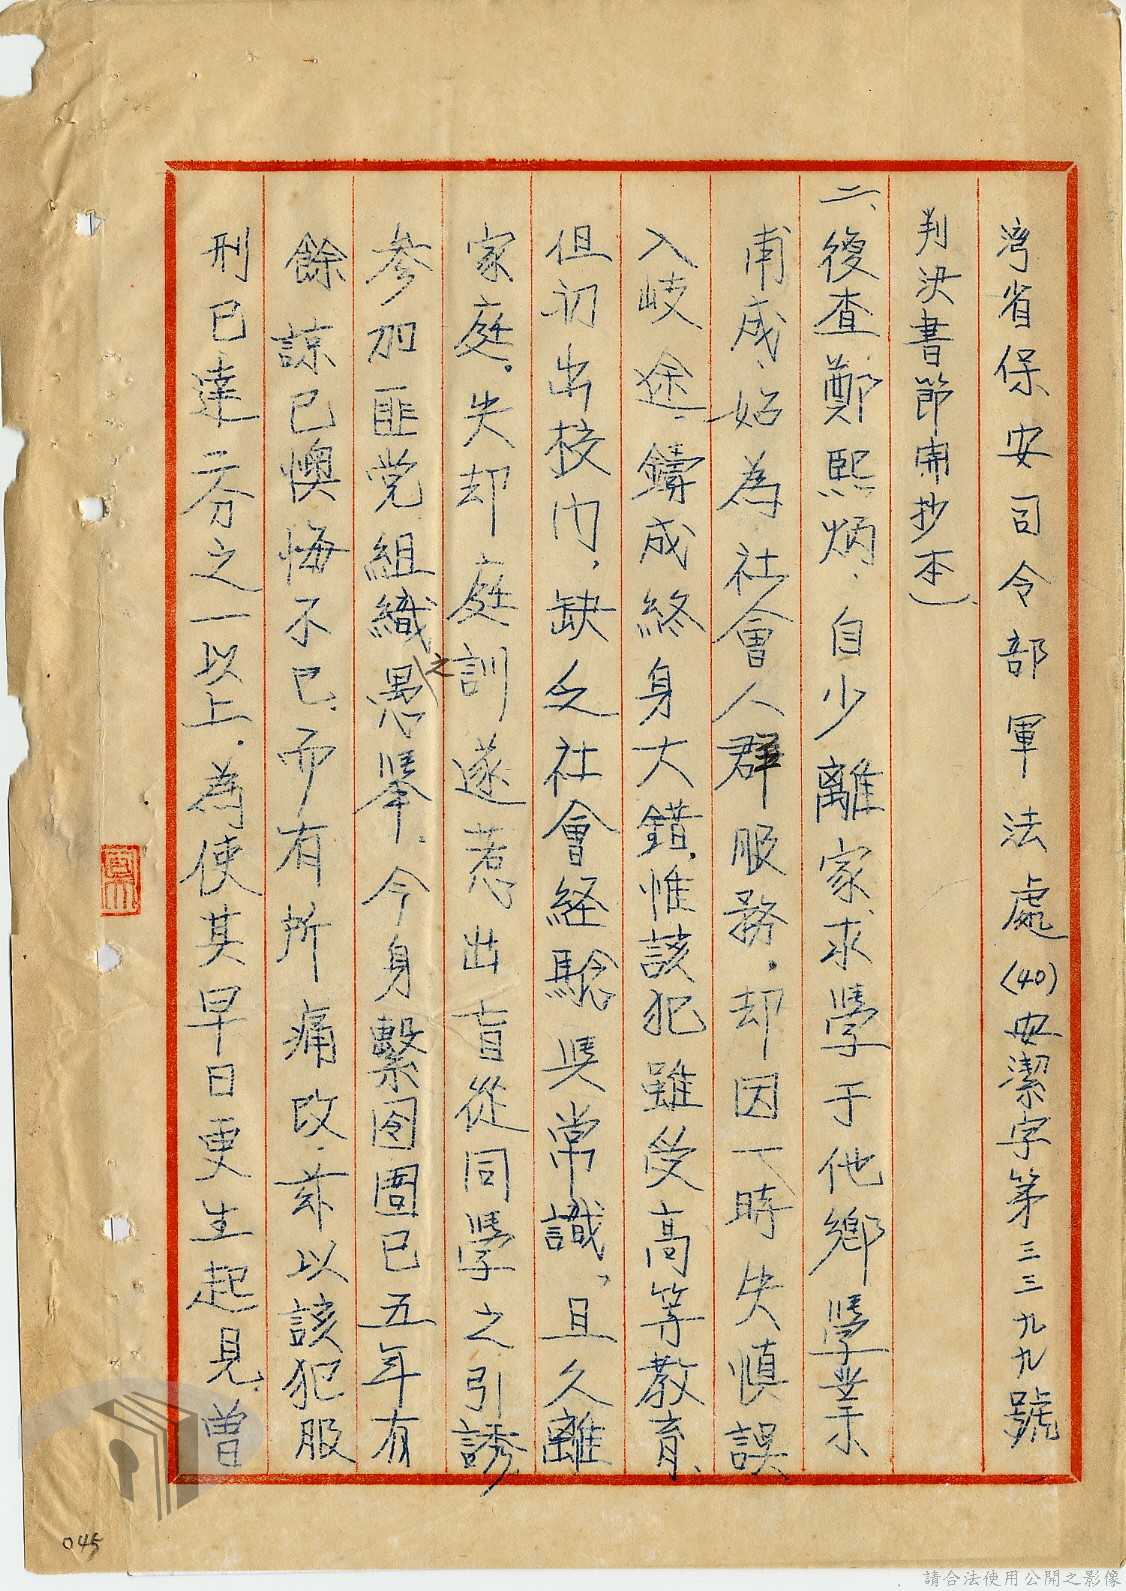 湾省保安司令部軍法處(40)安潔字第三三九九號
判決書節開抄本)
二、復查鄭熙炳、自少離家求學于他鄉學業
甫成、始為社會人群服務、却因一時失慎誤
入岐途、鑄成終身大錯、惟該犯雖受高等教育、
但初出校门、缺乏社會経驗與常識、且久離
家庭、失却庭訓遂惹出盲從同學之引誘
参加匪党組織之愚舉、今身繫囹圄已五年有
餘諒已懊悔不已、而有所痛改、茲以該犯服
刑已達二分之一以上、為使其早日更生起見、曾
045
請合法使用公開之影像